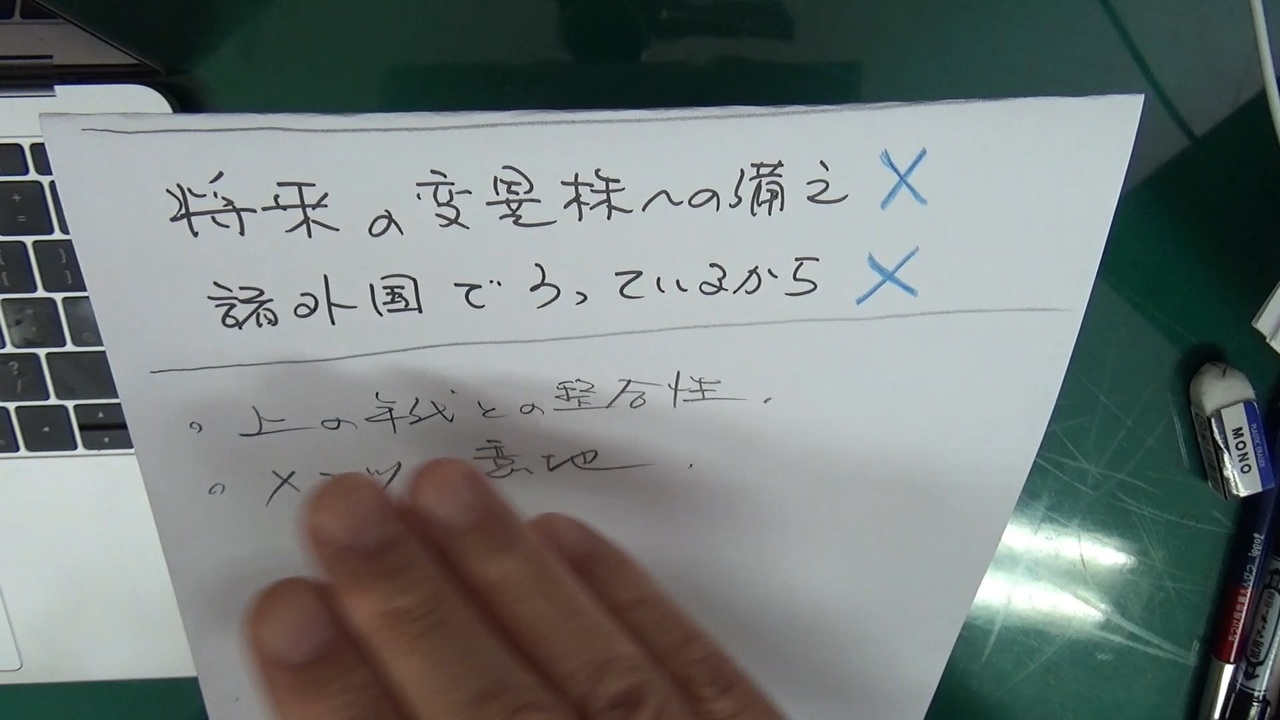 将来の変異株への備え ×
諸外国でろっているから ×
。上の年代との整合性.
。メンツ 意地.
MONO